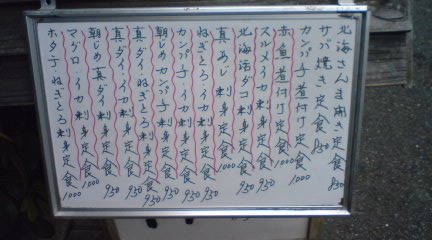 北海さんま開き定食 850
サバ焼き定食 850
カンパチ煮付け定食 1000
赤魚煮付け定食 1000
スルメイカ刺身定食 950
北海活ダコ刺身定食 950
真あじ刺身定食 1000
ねぎとろ・イカ刺身定食 950
カンパチ・イカ刺身定食 950
朝じめカンパチ刺身定食 950
真ダイ・ねぎとろ刺身定食 950
真ダイ・イカ刺身定食 950
朝じめ真ダイ刺身定食 1000
マグロ・イカ刺身定食 1000
ホタテ・ねぎとろ刺身定食 1000